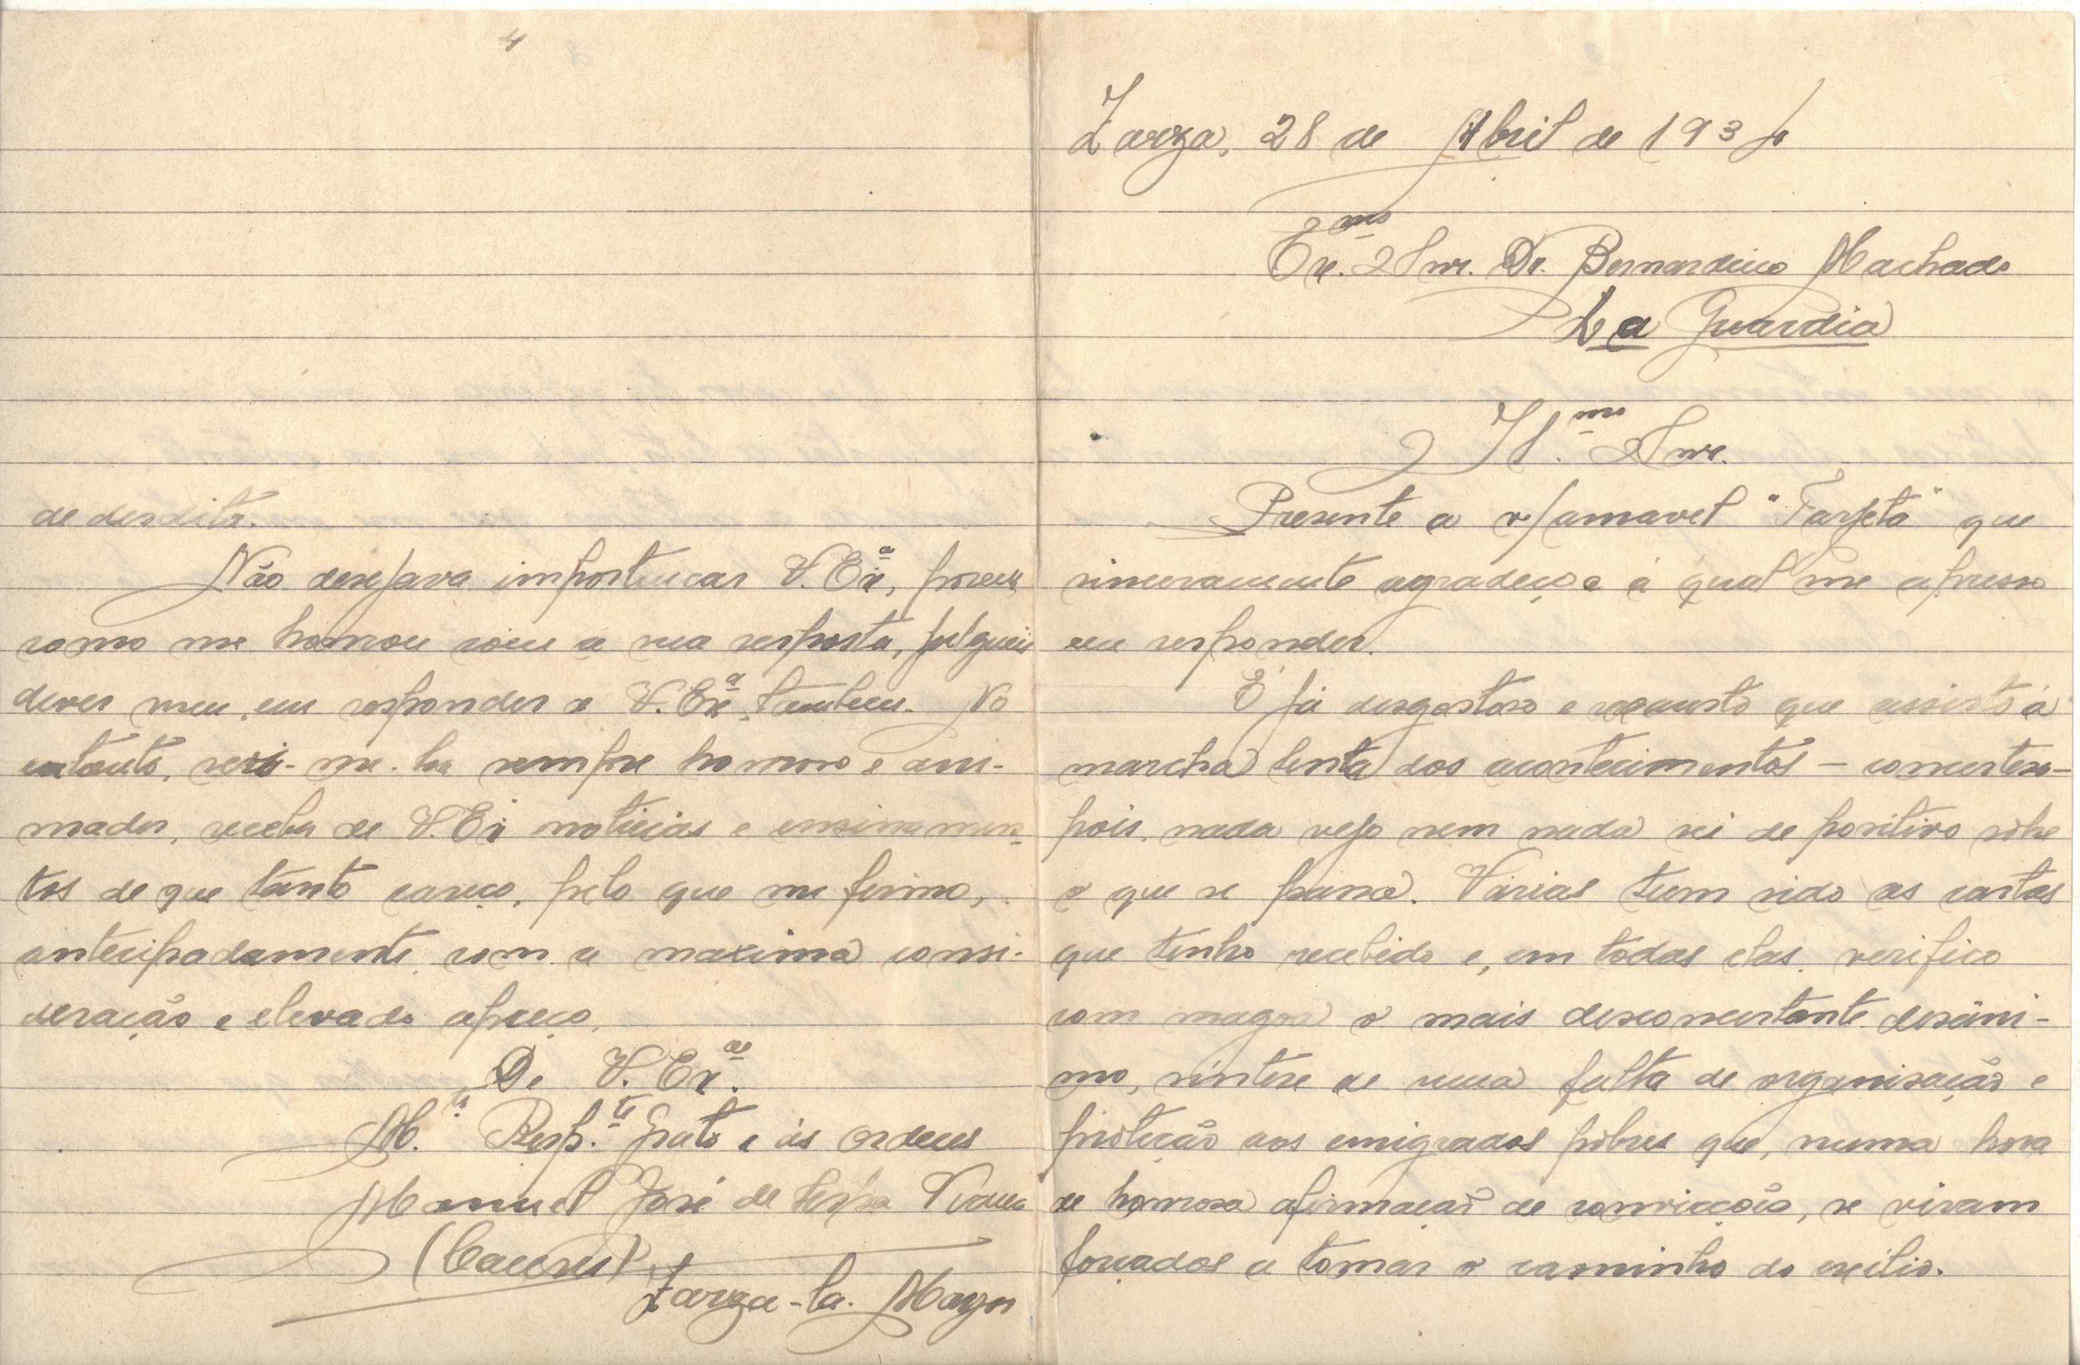 Zarza, 28 de Abril de 193
Ex.mo Snr. Dr. Bernardino Machado
La Guardia
Il.mo Snr.
Presente a v/amavel "Tarjeta" que
sinceramente agradeço e á qual me apresso
em responder.
É já desgostoso e exausto que assisto á
marcha lenta dos acontecimentos -
pois, nada vejo nem nada sei de positivo sôbre
o que se passa. Várias tem sido as cartas
que tenho recebido e, em tôdas elas, verifico
com magoa o mais desconcertante desâni-
mo, sintese de uma falta de organisação e
proteção aos emigrados pobres que, numa hora
de honrosa afirmação de convicção, se viram
forçados a tomar o caminho do exilio.
4
de desdita.
Não desejava importunar V. Ex.a, porem
como me honrou com a sua resposta, julguei
dever meu, em responder a V. Ex.a, tambem. No
entanto, ser-me-ha sempre honroso e ani-
mador, receber de V. Ex noticias e ensinamen-
tos de que tanto careço, pelo que me firmo,
antecipadamente, com a maxima consi-
deração e elevado apreço.
De V. Ex.ae
M.to Resp.te grato e ás ordens
Manuel José de
Zarza-la-Mayor